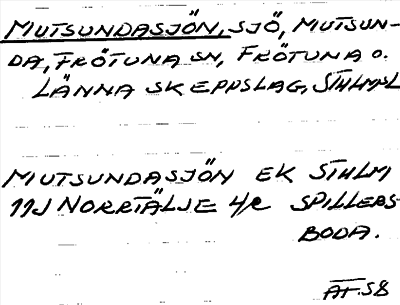 MUTSUNDASJÖN, SJÖ, MUTSUN-
DA, FRÖTUNA SN, FRÖTUNA O.
LÄNNA SKEPPSLAG, STHLMSL
MUTSUNDASJÖN EK STHLM
11J NORRTÄLJE 4/2 SPILLERS-
BODA.
ÄT.58